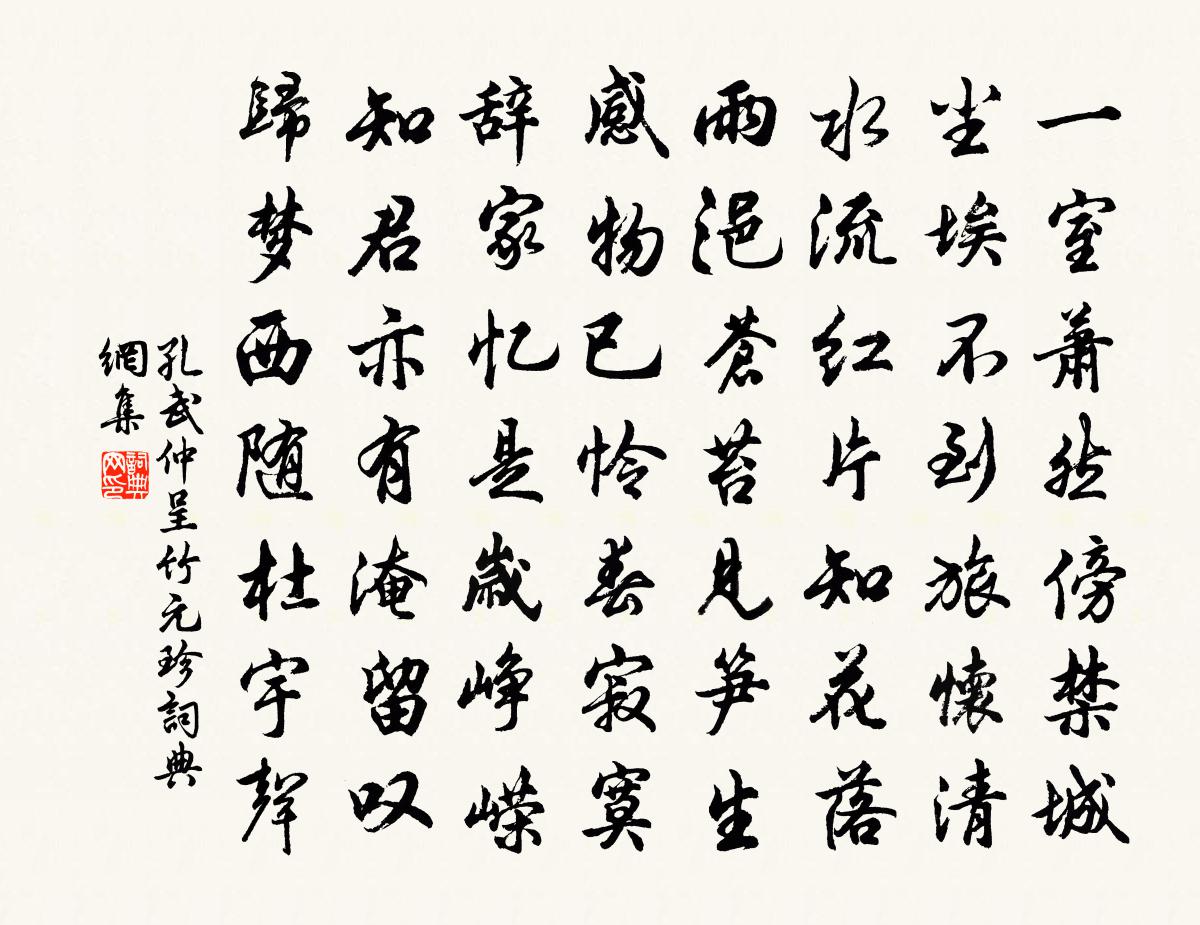 一室萧然傍禁城
尘埃不到旅懷清
水流红片知花落
雨浥蒼苔見笋生
感物已怜春寂寞
辞家忆是歲峥嵘
知君亦有淹留叹
歸梦西随杜宇聲
孔武仲呈竹元珍詞典
網集
詞典
网印